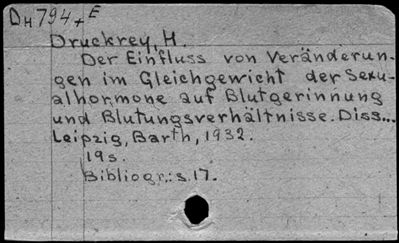 DH794+E
Druckrey, H.
Der Einfluss von Veränderun-
gen im Gleichgewicht der Sexu-
alhormone auf Blutgerinnung
und Blutungsverhältnisse. Diss...
Leipzig, Barth, 1932.
19s.
Bibliogr.: s.17.